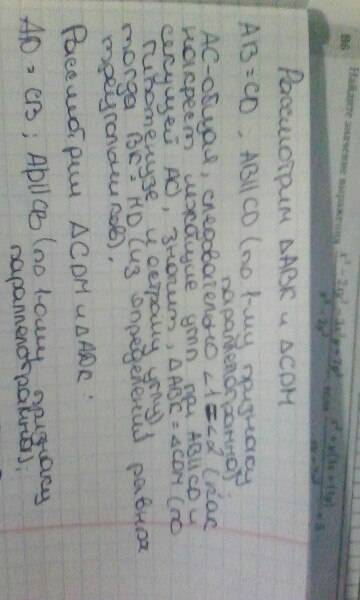 В6 Найдите значение выражения
Рассмотрим ΔАВК и ΔCDM
АВ = CD, АВ || CD (по 1-му признаку
параллелограмма);
АС - общая, следовательно ∠1 = ∠2 (как
накрест лежащие углы при АВ || CD и
секущей АС), значит, ΔАВК = ΔCDM (по
гипотенузе и острому углу)
тогда ВК = MD (из определения равных
треугольников).
Рассмотрим ΔCDM и ΔАВК:
AD = CB; AD || CB (по 1-ому признаку
параллелограмма);